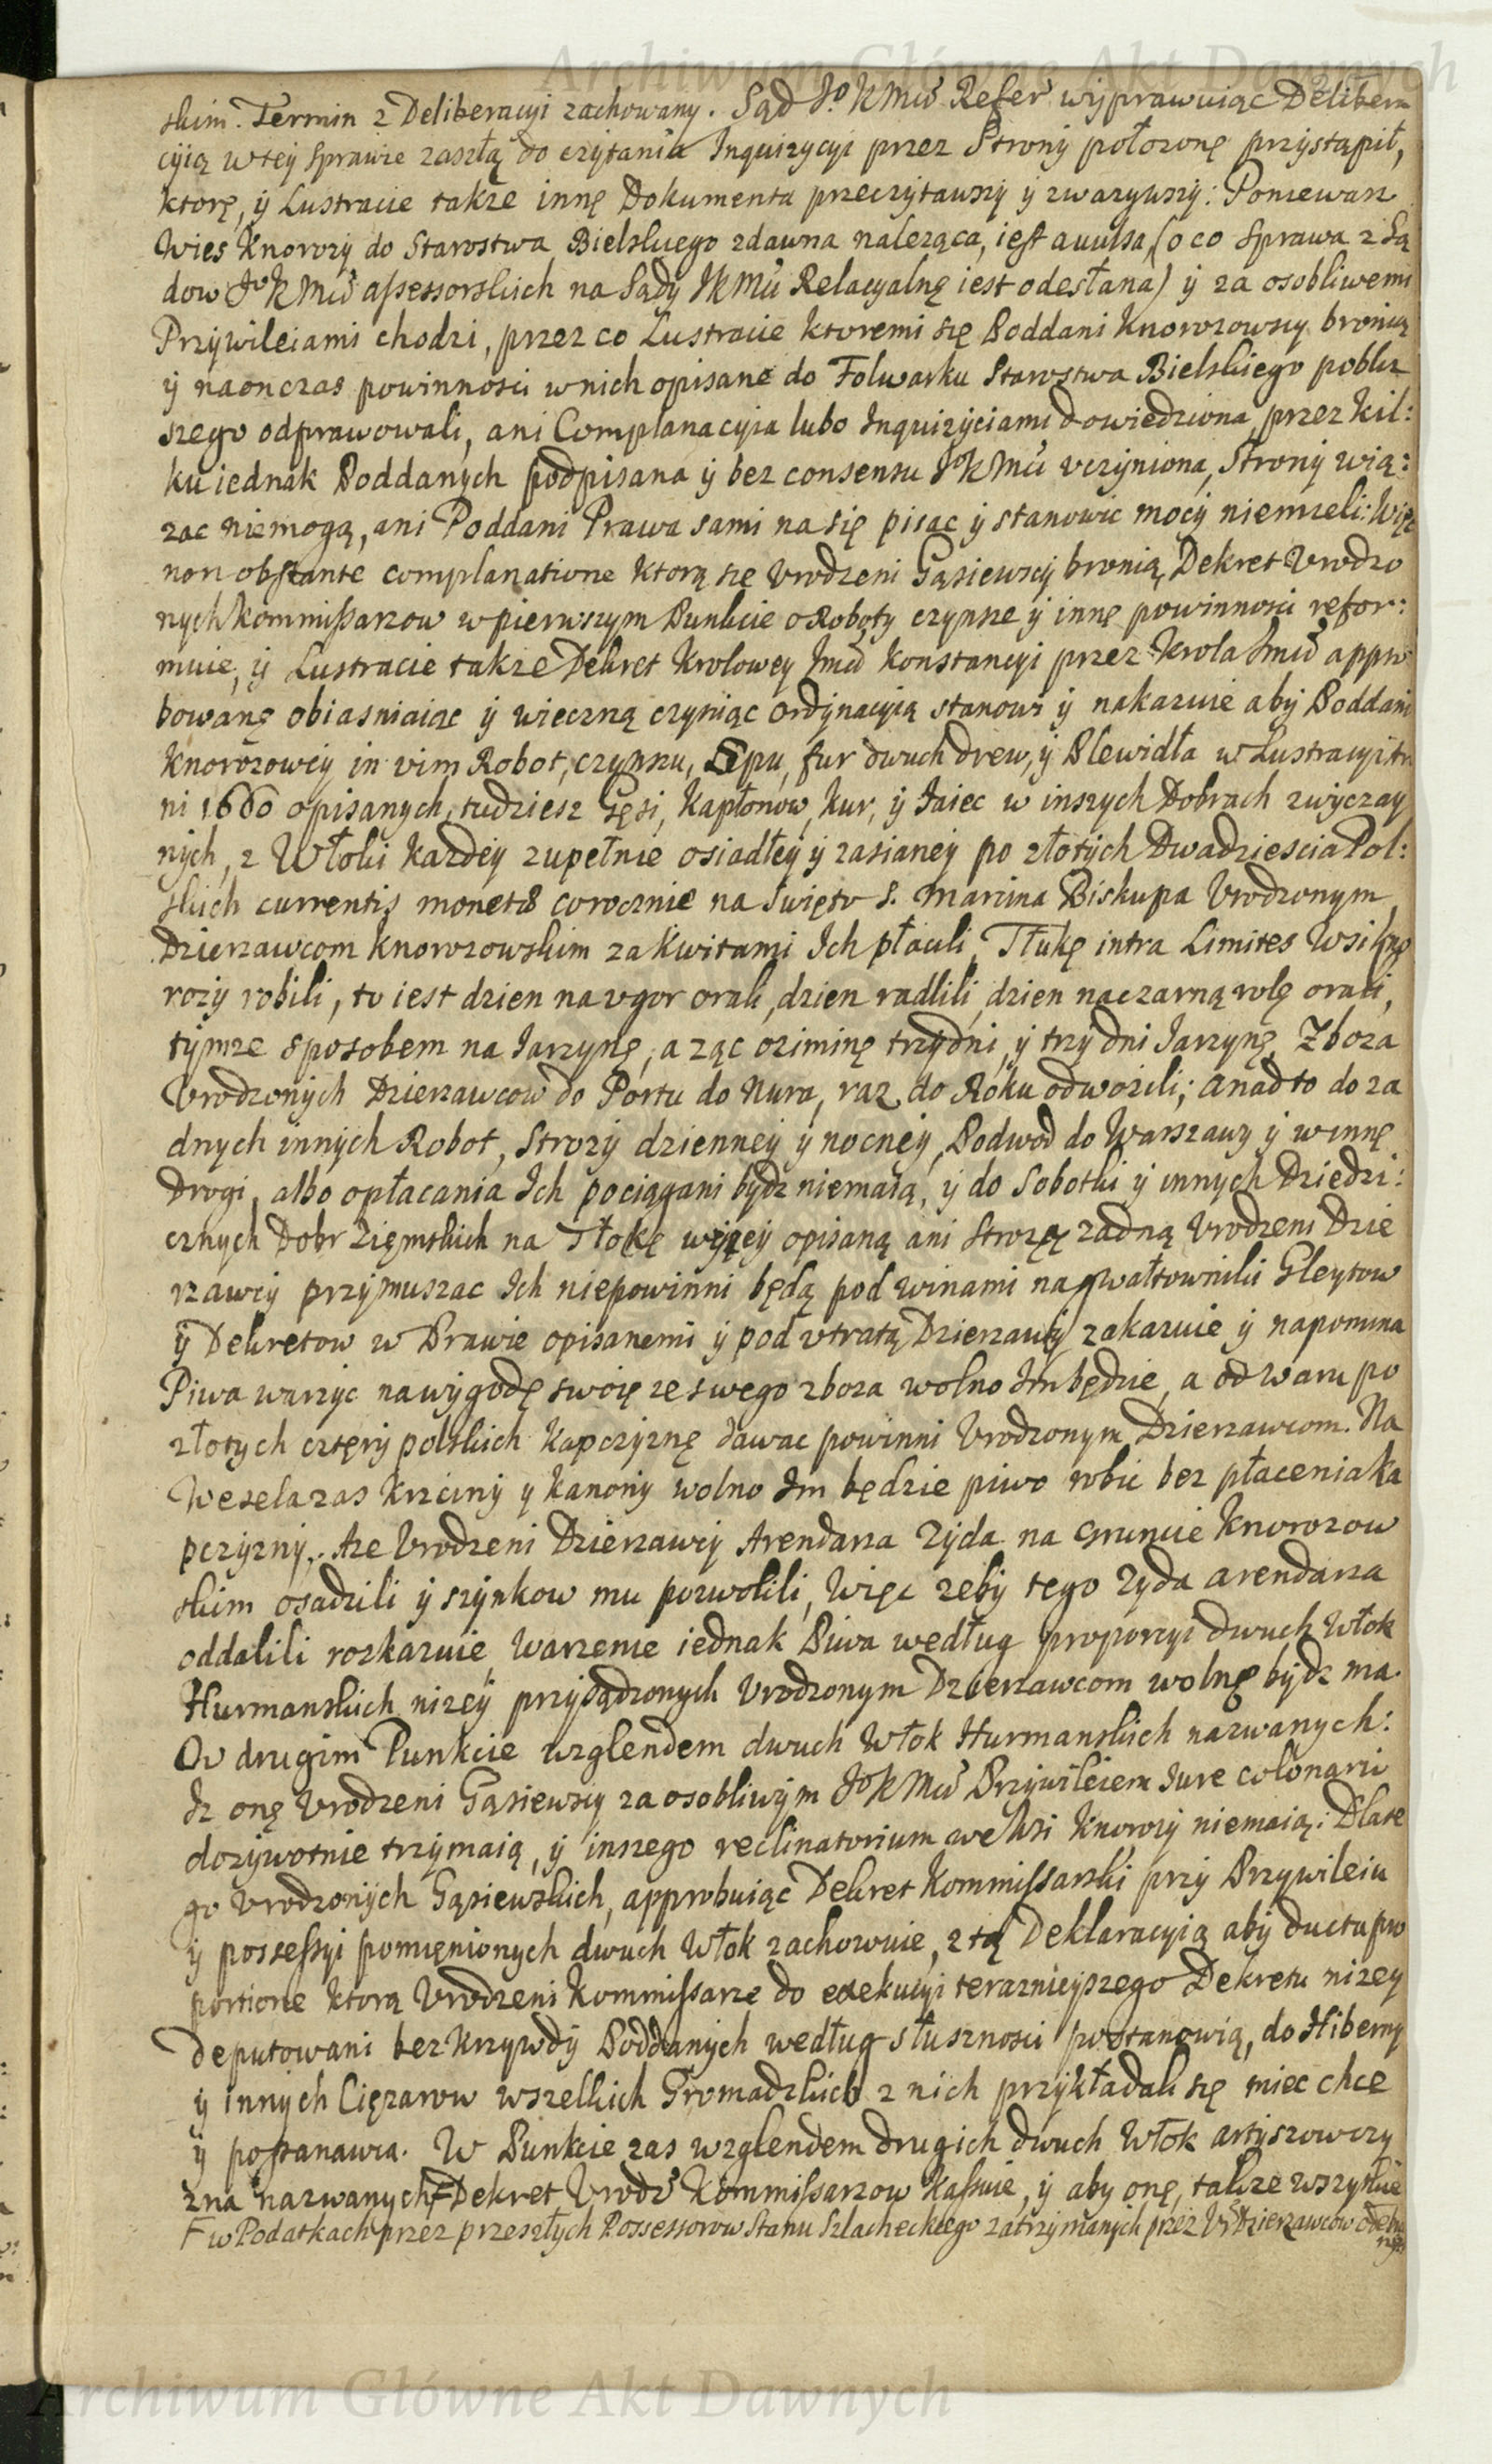 Archiwum Główne Akt Dawnych
skim. Termin z Deliberacyi zachowany. Sąd Jo KMci Refer wyprawuiąc Delibera
cyią wtey sprawie zaszłą do czytania Inquizycyi przez Strony położonę przystąpił,
ktorę, y Lustracie także innę Dokumenta przeczytawszy y zwazywszy: Poniewasz
Wies Knorozy do Starostwa Bielskiego zdawna naleząca, iest avulsa (o co Sprawa z Są
dow Jo K Mci assessorskich na Sądy JKMci Relacyalnę iest odesłana) y za osobliwemi
Przywileiami chodzi, przez co Lustracie ktoremi się Poddani Knorozowscy bronią
y naonczas powinnosci wnich opisane do Folwarku Starostwa Bielskiego pobliz
szego odprawowali, ani Complanacyia lubo Inquizyciami dowiedziona, przez kil:
ku iednak Poddanych podpisana y bez consensu Jo K Mci vczyniona, Strony wią:
zac niemogą, ani Poddani Prawa sami na się pisac y stanowic mocy niemieli: Więc
non obstante complanatione ktorą się Vrodzeni Gąsiewscy bronią, Dekret Vrodzo
nych Kommissarzow wpierwszym Punkcie o Roboty czynsze y innę powinnosci refor:
muie, y Lustracie także Dekret Krolowey Jmci Konstancyi przez Krola Jmci appro
bowanę obiasniaiąc y wieczną czyniąc ordynacyią stanowi y nakazuie aby Poddani
Knorozowcy in vim Robot, czynszu, Sepu, fur dwuch drew, y Plewidła w Lustracyi tr
ni 1660 opisanych, tudziesz Gęsi, Kapłonow, kur, y Iaiec w inszych Dobrach zwyczay
nych, z Włoki kazdey zupełnie osiadłey y zasianey po złotych Dwadziescia Pol:
skich currentis moneta corocznie na swięto S. Marcina Biskupa Vrodzonym
Dzierzawcom Knorozowskim za Kwitami Ich płacili, Tłukę intra Limites Wsi Kno
rozy robili, to iest dzien na vgor orali, dzien radlili, dzien na czarną rolę orali,
tymze sposobem na Iarzynę, a ząc oziminę trzy dni, y trzy dni Iarzynę, Zboza
Vrodzonych Dzierzawcow do Portu do Nura, raz do Roku odwozili; a nad to do za
dnych innych Robot, Strozy dzienney y nocney, Podwod do Warszawy y w innę
Drogi, albo opłacania Ich pociągani bydz niemaią, y do Sobotki y innych Dziedzi:
cznych Dobr Ziemskich na Tłokę wyzey opisaną ani Strozę zadną Vrodzeni Dzie
rzawcy przymuszac Ich niepowinni będą pod winami na gwałtowniki Gleytow
y Dekretow w Prawie opisanemi y pod vtratą Dzierzawy zakazuie y napomina
Piwa warzyc na wygodę swoię ze swego zboza wolno Im będzie, a od waru po
złotych cztęry polskich Kapczyznę dawac powinni Vrodzonym Dzierzawcom. Na
Wesela zas krzciny y kanony wolno Im będzie piwo robic bez płacenia ka
pczyzny. Aze Vrodzeni Dzierzawcy Arendarza Zyda na Gruncie Knorozow
skim osadzili y szynkow mu pozwolili, Więc zeby tego Zyda arendarza
oddalili rozkazuie, Warzenie iednak Piwa według proporcyi dwuch Włok
Hurmanskich nizey przysądzonych Vrodzonym Dzierzawcom wolnę bydz ma.
W drugim Punkcie wzglendem dwuch Włok Hurmanskich nazwanych:
Iz onę Vrodzeni Gąsiewscy za osobliwym Jo K Mci Przywileiem Iure colonario
dozywotnie trzymaią, y inszego reclinatorium we Wsi Knorozy niemaią: Dlate
go Vrodzonych Gąsiewskich, approbuiąc Dekret Kommissarski przy Przywileiu
y possessyi pomięnionych dwuch Włok zachowuie, z tą Deklaracyią aby ducta pro
portione ktorą Vrodzeni Kommissarze do exekucyi teraznieyszego Dekretu nizey
deputowani bez krzywdy Poddanych według słusznosci postanowią, do Hiberny
y innych Cięzarow wszelkich Gromadzkich z nich przykładali się miec chce
y postanawia. W Punkcie zas wzglendem drugich dwuch Włok artyszowczy
zna nazwanych F Dekret Vrodz Kommissarzow kassuie, y aby onę, także wszystkie
F w Podatkach przez przeszłych Possessorow Stanu Szlacheckiego zatrzymanych przez Vr Dzierzawcow
Archiwum Główne Akt Dawnych